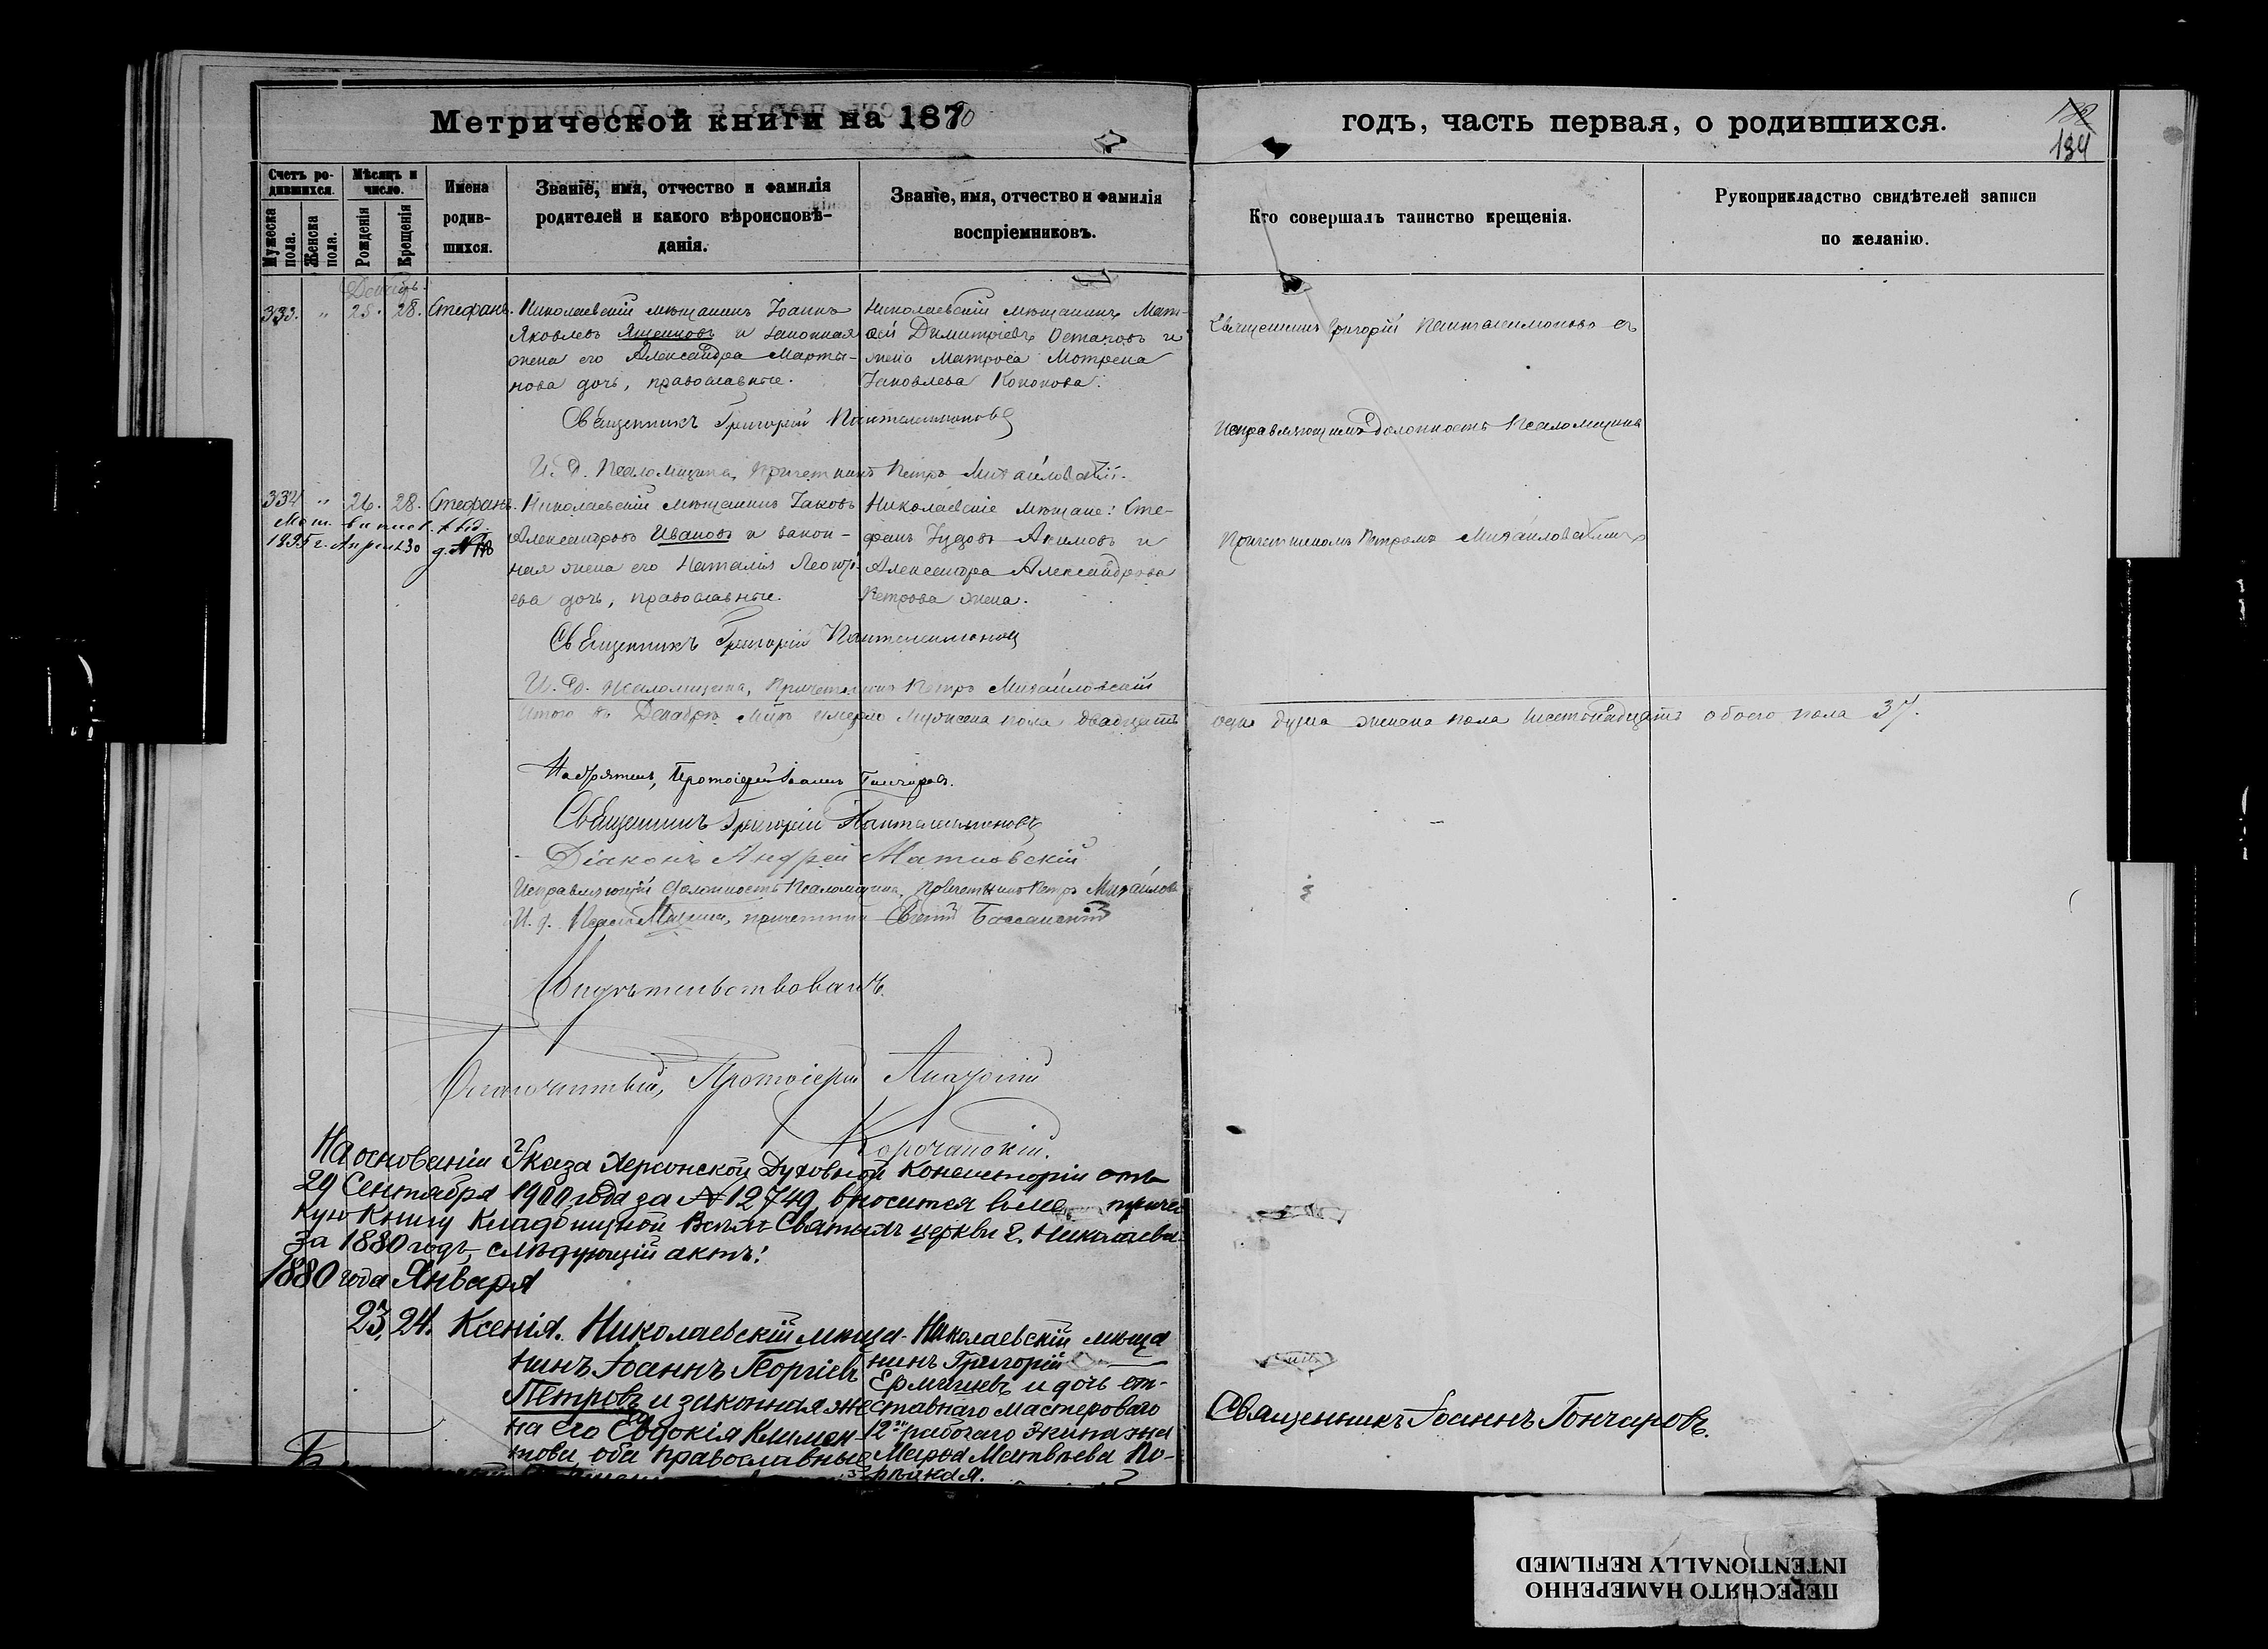 Метрической книги на 1880
годъ, часть первая, о родившихся.
134
Счетъ ро-
дившихся.
Мужеска пола.
Женска пола.
Мѣсяцъ и
число.
Рожденія
Крещенія
Имена
родив-
шихся.
Званіе, имя, отчество и фамилія
родителей и какого вѣроисповѣ-
данія.
Званіе, имя, отчество и фамилія
воспріемниковъ.
Кто совершалъ таинство крещенія.
Рукоприкладство свидѣтелей записи
по желанію.
Декабрь.
333. " 25. 28. Стефанъ.
Николаевскій мѣщанинъ Іоаннъ
Яковлевъ Ященковъ и законная
жена его Александра Марты-
нова дочь, православные.
Николаевскій мѣщанинъ Мат-
ѳей Димитріевъ Остаповъ и
жена матроса Мотрена
Іаковлева Кононова.
Священникъ Григорій Пантелеимоновъ съ
Исправляющимъ Должность Псаломщика
Причетникомъ Петромъ Михайловскимъ
Священникъ Григорій Пантелеимоновъ
И. Д. Псаломщика, Причетникъ Петръ Михайловскій.
334 " 26. 28. Стефанъ.
1895 г. Апреля 30
Николаевскій мѣщанинъ Іаковъ
Александровъ Ивановъ и закон-
ная жена его Наталія Леонті-
ева дочь, православные.
Николаевскіе мѣщане: Сте-
фанъ Іудовъ Акимовъ и
Александра Александрова
Петрова жена.
Священникъ Григорій Пантелеимоновъ
И. Д. Псаломщика, Причетникъ Петръ Михайловскій
Итого въ Декабрѣ м-цѣ умерло мужеска пола двадцать
одна душа женска пола шестнадцать обоего пола 37.
Настоятель, Протоіерей Іоаннъ Гончаровъ.
Священникъ Григорій Пантелеимоновъ
Діаконъ Андрей
Исправляющій должность Псаломщика, Причетникъ Петръ Михайлов
И. д. Псаломщика, причетникъ
Свидѣтельствовалъ.
Благочинный, Протоіерей
Корочанскій.
На основаніи Указа Херсонской Духовной Консисторіи отъ
29 Сентября 1900 года за № 12749 вносится въ ме
кую книгу Кладбищной Всѣмъ Святымъ церкви г. Николаева
за 1880 годъ, слѣдующій актъ:
1880 года Января
23, 24. Ксенія.
Николаевскій мѣща-
нинъ Іоаннъ Георгіевъ
Петровъ и законная же
на его Евдокія Климен-
това, оба православные
Николаевскій мѣща
нинъ Григорій
и дочь от-
ставнаго мастероваго
12го рабочаго экипажа
Марѳа Матвѣева По-
рѣцкая.
Священникъ Іоаннъ Гончаровъ.
ПЕРЕСНЯТО НАМЕРЕННО
INTENTIONALLY REFILMED